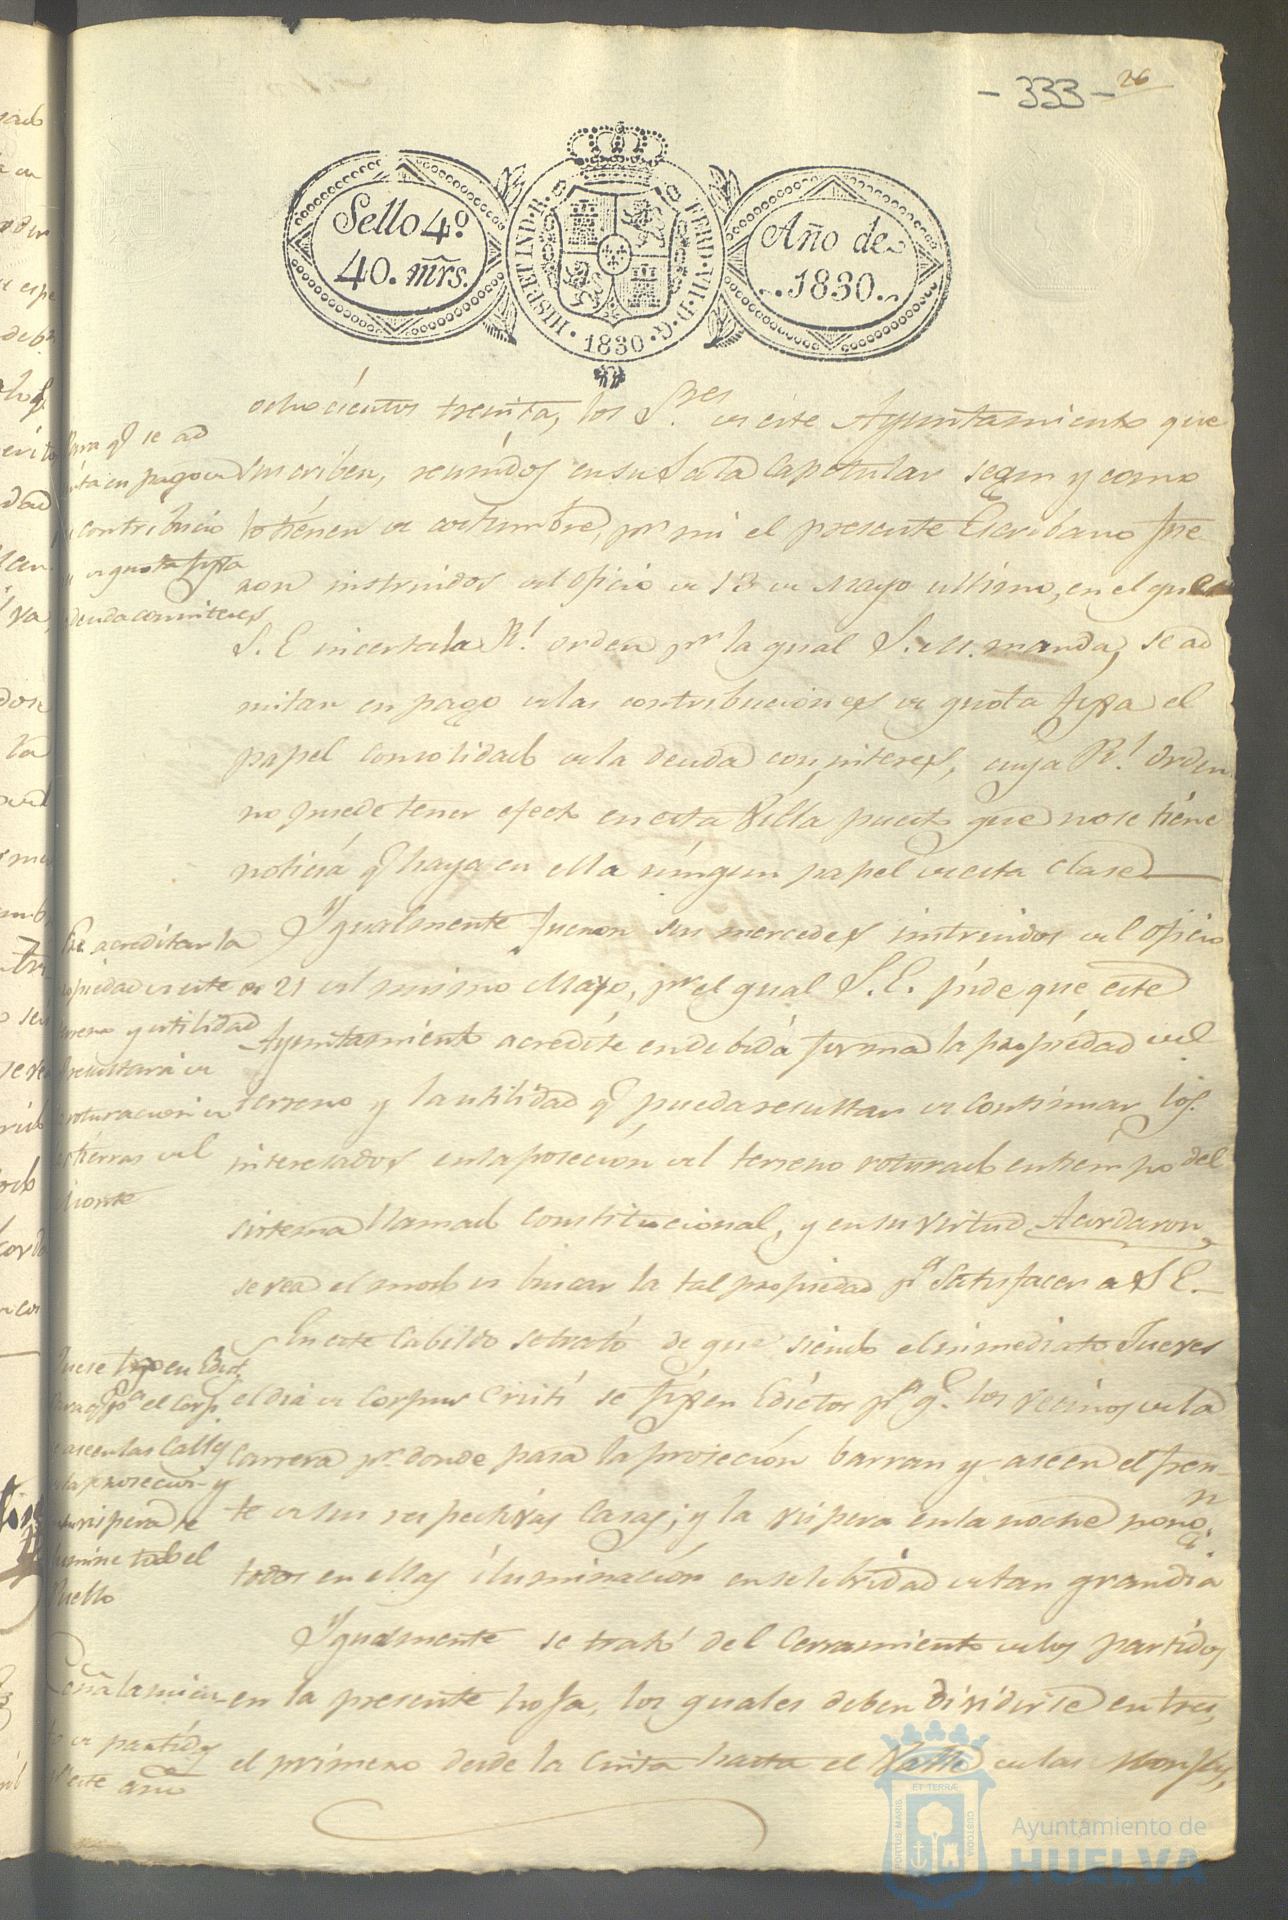 - 333 -
26
Sello 4º
40. mrs.
HISP. ET IND. R.
FERD. VII. D. G.
1830
Año de
1830.
ochocientos treinta, los S.res de este Ayuntamiento que
suscriben, reunidos en su Sala Capitular segun y como
lo tienen de costumbre, pr mi el presente Escribano fue-
ron instruidos del oficio de 13 de Mayo ultimo, en el que
S.E incerta la Rl. orden pr la qual S. M. manda, se ad
mitan en pago de las contribuciones de quota fixa el
papel consolidado de la deuda con interes, cuya Rl. orden
no puede tener efecto en esta Villa puesto que no se tiene
noticia q haya en ella ningun papel de esta clase
Para q se ad
en pago de
contribucio
de quota fixa
deuda con interes
Ygualmente fueron sus mercedes instruidos del oficio
de 21 del mismo Mayo, pr el qual S.E. pide que este
Ayuntamiento acredite en debida forma la propiedad del
terreno y la utilidad q pueda resultar de continuar los
interesados en la poseción del terreno roturado en tiempo del
sistema llamado constitucional, y en su virtud Acordaron
se vea el modo de buscar la tal propiedad pa satisfacer a S E.
acreditar la
piedad de este
terreno y utilidad
resultará de
roturacion de
tierras del
Monte
En este Cabildo se trató de que siendo el inmediato Jueves
el dia de Corpus Cristi se fixen Edictos pa q. los vecinos de la
carrera pr donde pasa la proseción barran y aseen el fren-
te de sus respectivas Casas; y la vispera en la noche pongn.
todos en ellas iluminación en selebridad de tan gran dia
Que se fixen Edict.
para q pa el Corps.
aseen las Calles
la prosecion y
vispera se
ilumine todo el
Pueblo
Ygualmente se trató del Cerramiento de los partidos
en la presente hoja, los quales deben dividirse en tres,
el primero desde la Cinta hasta el Valle de las Monjas,
Señalamien
to de partidos
pa este año
PORTUS MARIS
ET TERRÆ
CUSTODIA
Ayuntamiento de
HUELVA